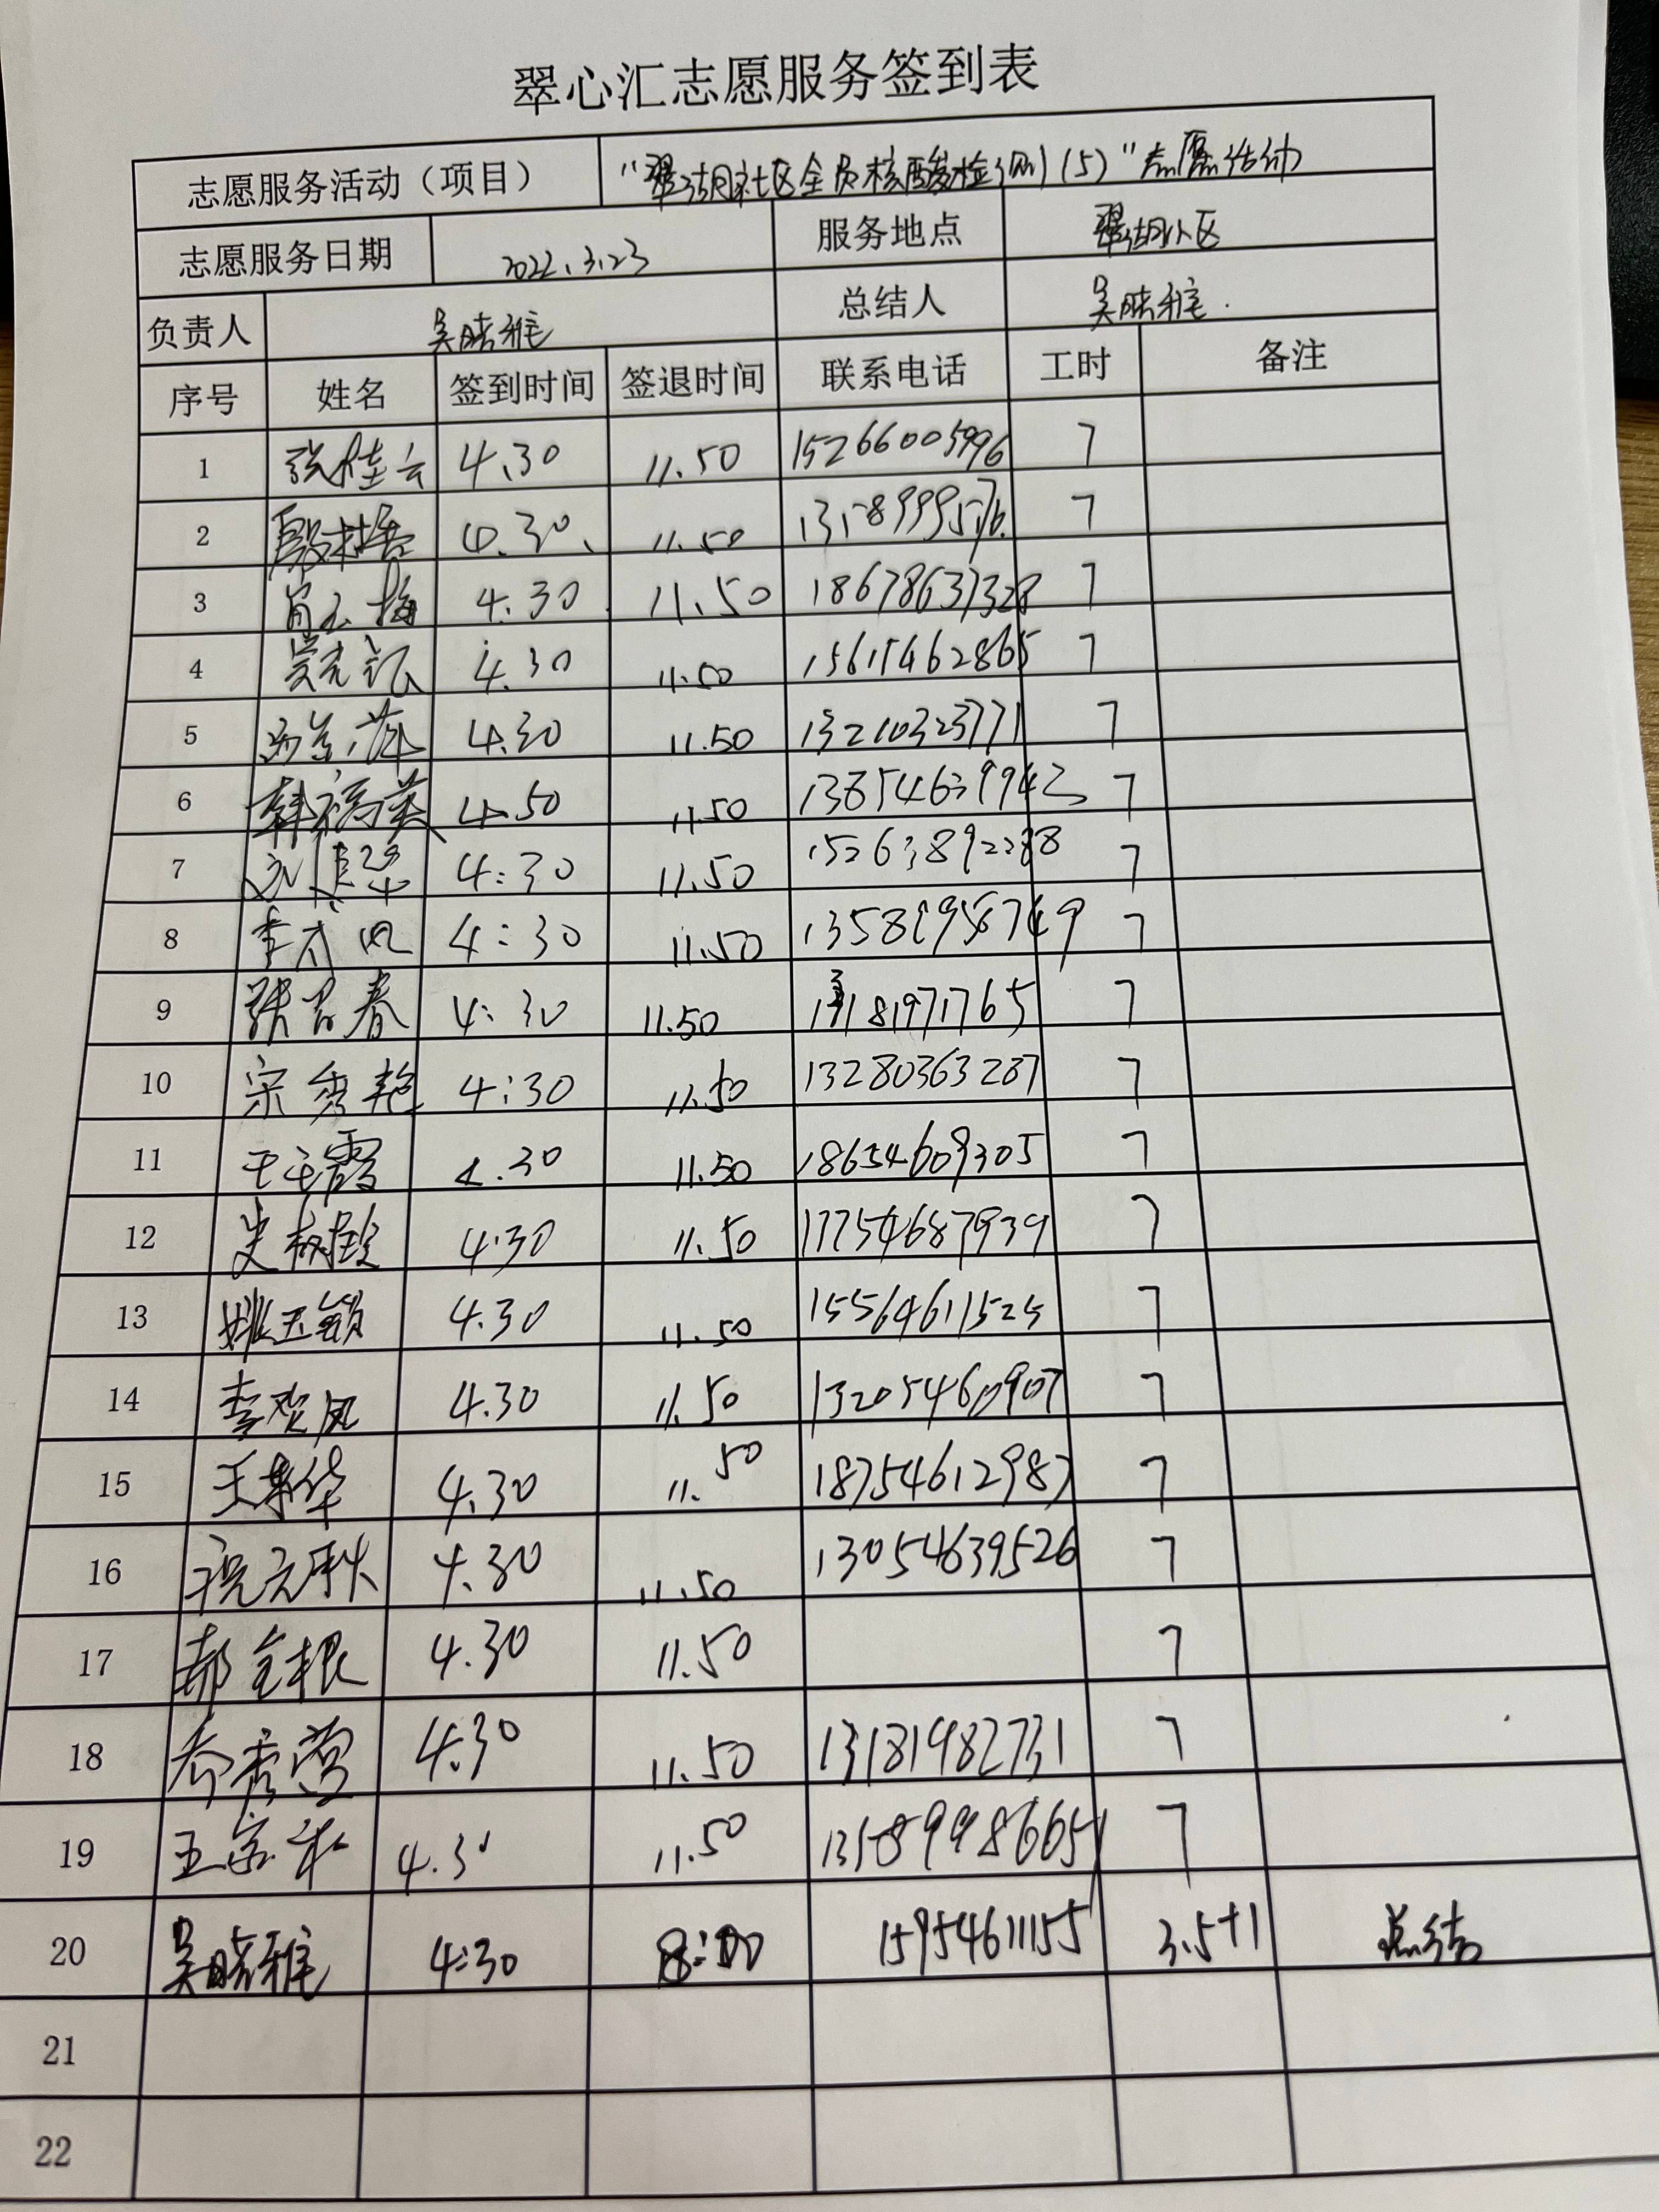 翠心汇志愿服务签到表
志愿服务活动（项目） “翠湖社区全员核酸检测(5)”志愿活动
志愿服务日期 2022.3.23 服务地点 翠湖小区
负责人 吴晓雅 总结人 吴晓雅.
序号 姓名 签到时间 签退时间 联系电话 工时 备注
1 张桂云 4.30 11.50 15266005996 7
2 4.30、 11.50 7
3 肖玉梅 4.30 11.50 18678637328 7
4 4.30 11.50 15615462865 7
5 4.30 11.50 13210323771 7
6 韩福英 4.50 11.50 13854639942 7
7 4:30 11.50 15263892288 7
8 4:30 11.50 7
9 张吉春 4:30 11.50 7
10 宋秀艳 4:30 11.50 13280363287 7
11 王玉霞 4.30 11.50 18654609305 7
12 4.30 11.50 17754687939 7
13 姚玉锁 4.30 11.50 15564611525 7
14 李欢凤 4.30 11.50 13205460907 7
15 4.30 11.50 18754612987 7
16 祝元秋 4.30 11.50 13054639526 7
17 郝全根 4.30 11.50 7
18 乔秀莹 4.30 11.50 13181982731 7
19 4.30 11.50 13589998665 7
20 吴晓雅 4:30 8:00 15954611155 3.5+1 总结
21
22